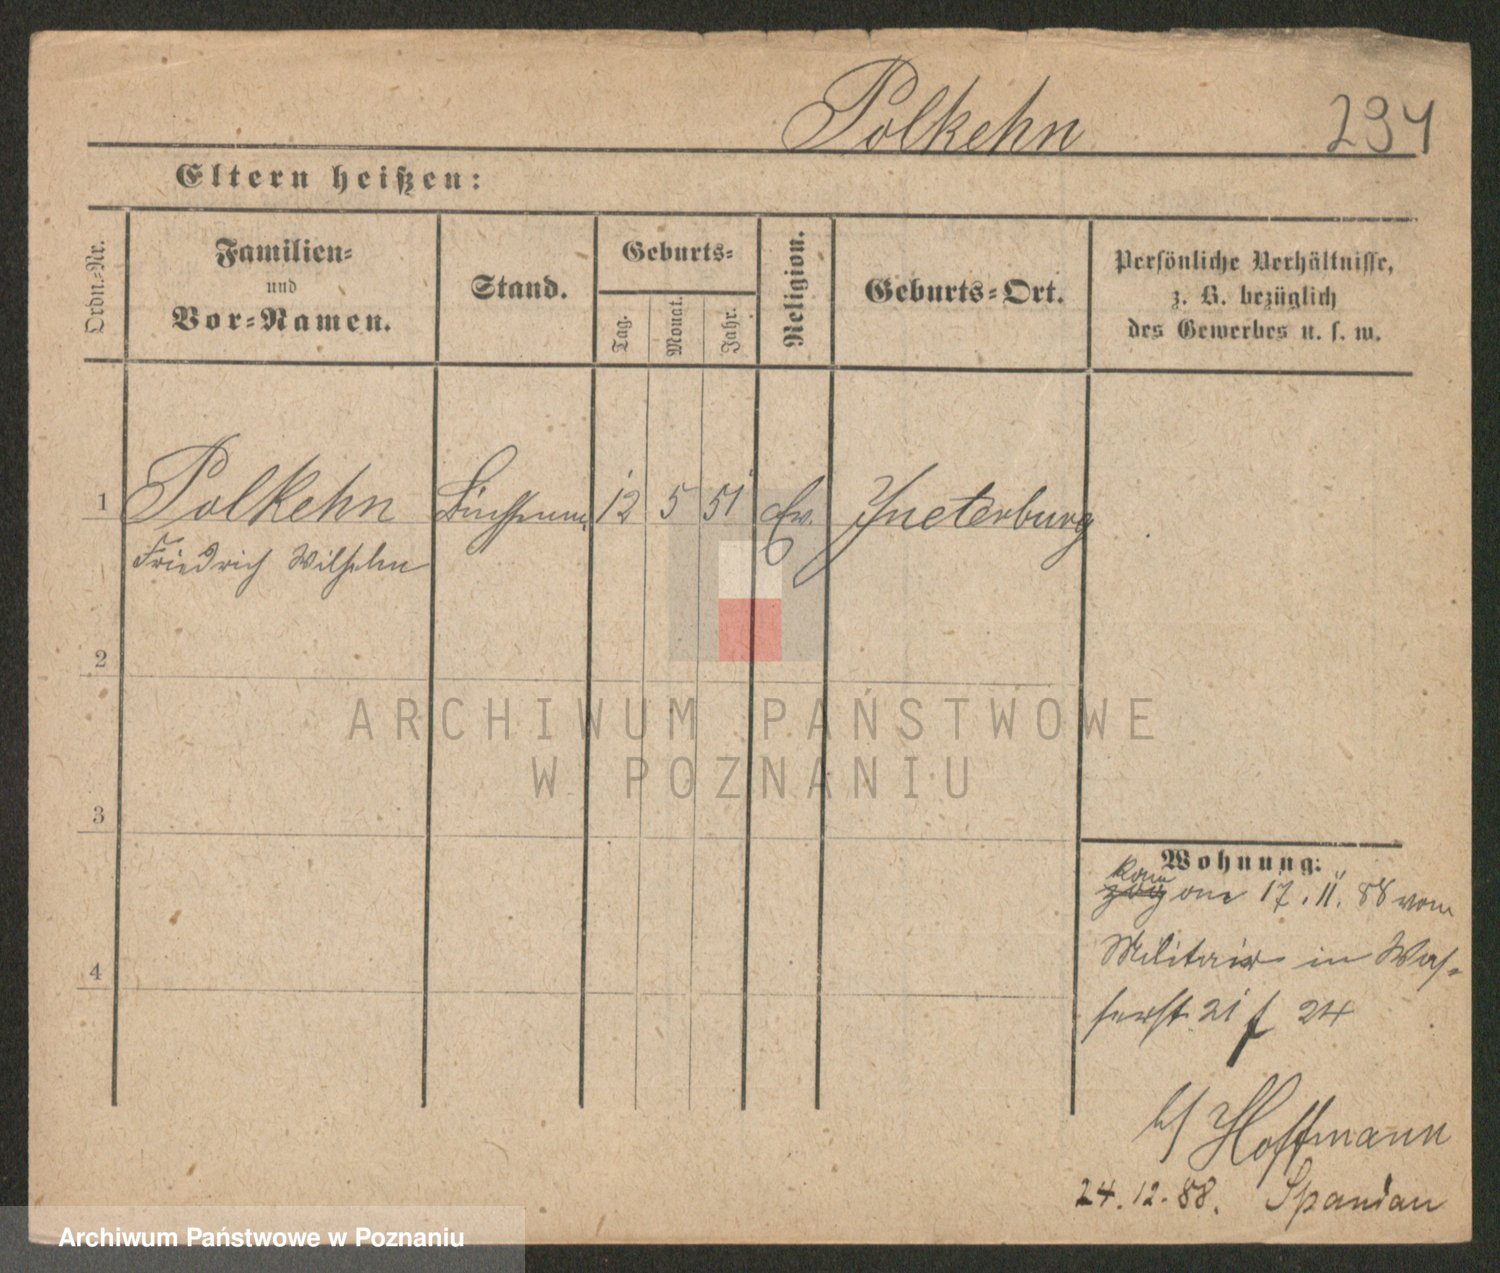 Polkehn
294
Eltern heißen:
Ordn.-Nr.
Familien-
und
Vor-Namen.
Stand.
Geburts-
Tag.
Monat.
Jahr.
Religion.
Geburts-Ort.
Persönliche Verhältnisse,
z. B. bezüglich
des Gewerbes u. s. w.
1 Polkehn 12 5 51 Ev. Ynsterburg
Friedrich Wilhelm
2
3
4
Wohnung:
kam
zog am 17. 11. 88 vom
Militair in Was-
serst. 21 f 24
b/ Hoffmann
24. 12. 88. Spandau
ARCHIWUM PAŃSTWOWE
W POZNANIU
Archiwum Państwowe w Poznaniu